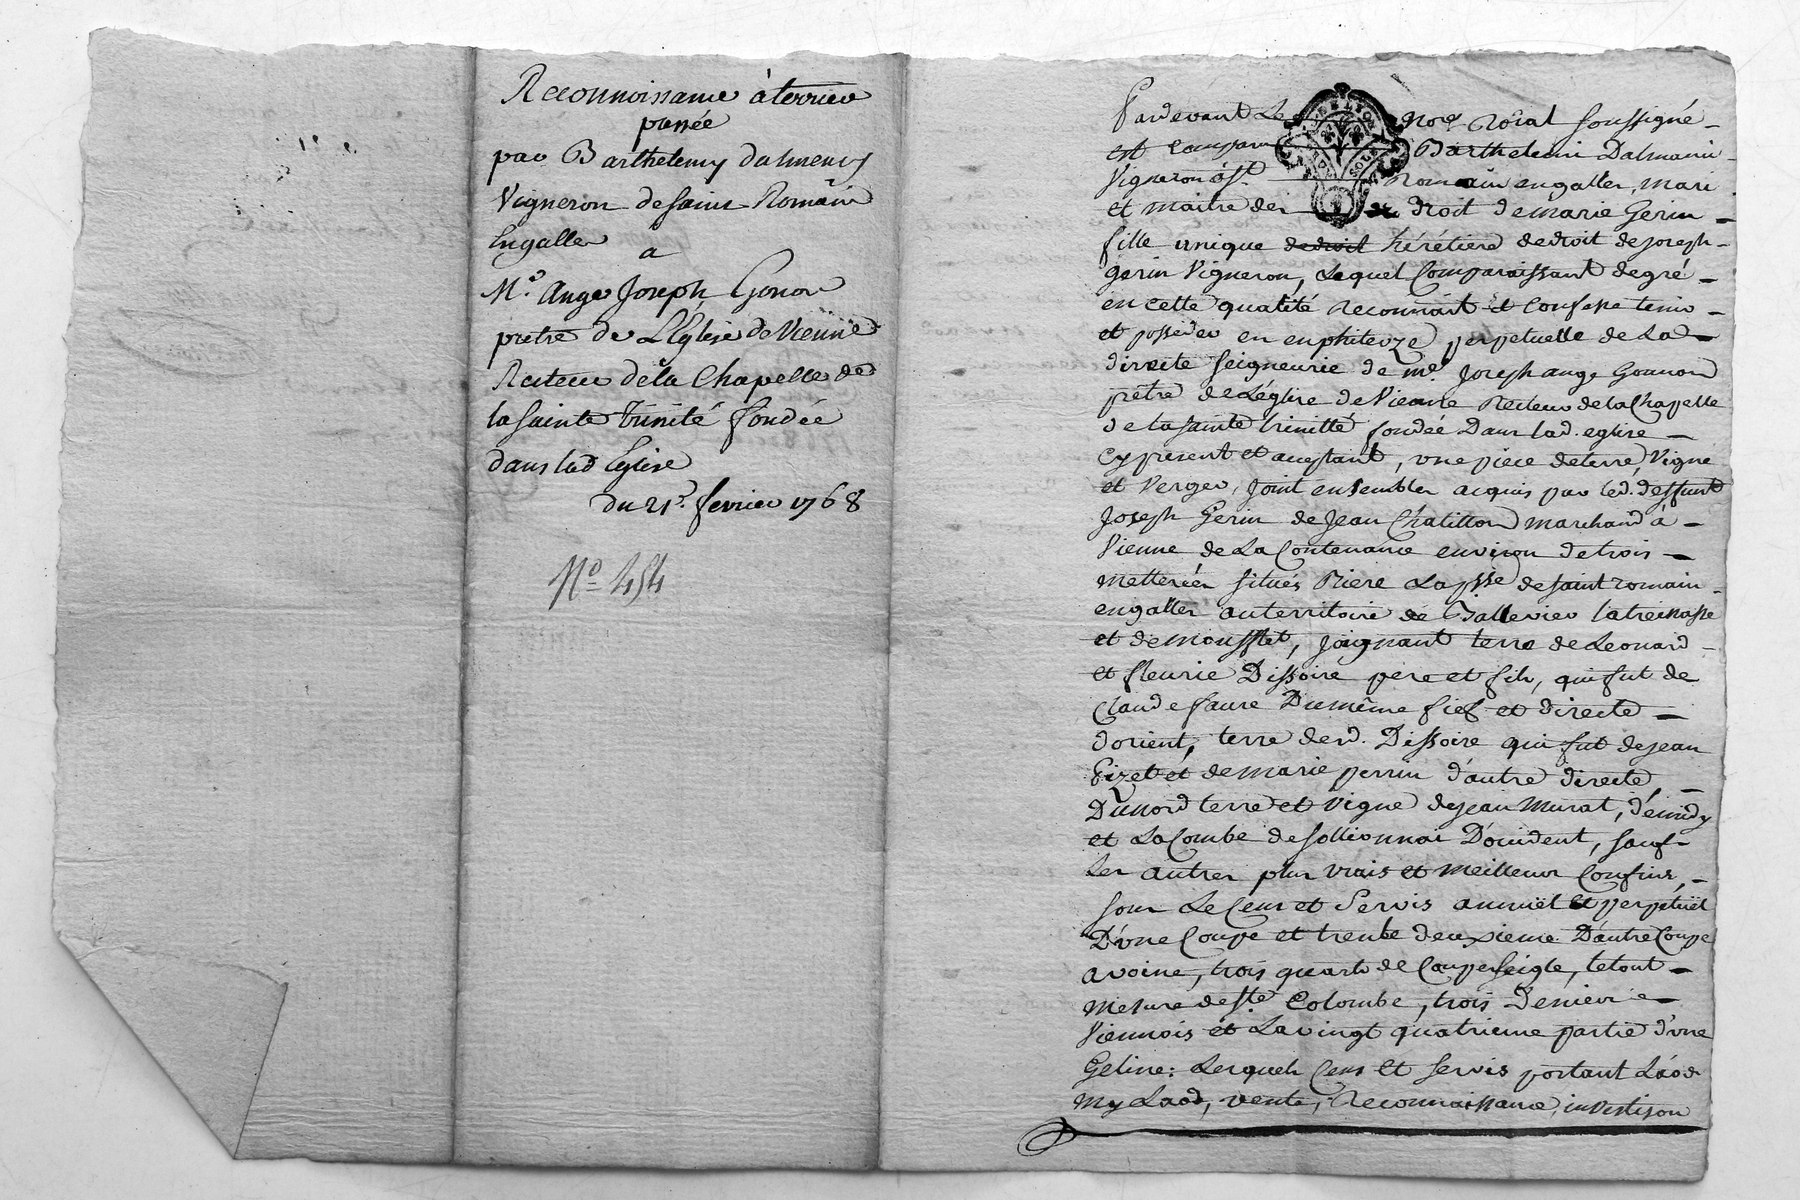 Reconnoissance à terrier
passée
par Barthelemy Dalmeny
Vigneron de saint Romain
Engalles
a
Mre. Ange Joseph Gonon
pretre de L'Eglise de Vienne
Recteur de la Chapelle de
la Sainte Trinité fondée
dans lad Eglise
du 21e. fevrier 1768
No 454
Pardevant Le Nore Roïal soussigné
est comparu Barthelemi Dalmanii
Vigneron à St. Romain engalles, mari
et maitre des droit de marie Gerin
fille unique de droit hérétiere de droit de joseph
gerin Vigneron, Lequel Comparaissant de gré
en cette qualité reconnoit et confesse tenir
et posseder en emphiteoze perpetuelle de La
directe seigneurie de me. Joseph ange Gounon
prêtre de L'église de Vienne Recteur de la Chapelle
de la sainte trinitté fondée Dans lad. eglise
Cy present et acceptant, une piece de terre, Vigne
et Verger, joint ensembles acquis par led. deffunt
Joseph Gerin de Jean Chatillon marchand à
Vienne de La Contenance environ de trois
metterées situés Riere La psse de saint romain
engalles au territoire de Ballevier latreinasse
et de mousset, joignant terre de Leonard
et fleurie Dissoire pere et fils, qui fut de
Claude faure Du même fief et directe
dorient, terre desd. Dissoire qui fut de jean
Pizet et de marie perrin d'autre directe
Du nord terre et vigne de jean Murat, de midy
et La Combe de sollionnai D'occident, sauf
Les autres plus vrais et meilleurs Confins,
sous Le Cens et Servis annuël et perpetuël
D'une Coupe et trente deuxieme D'autre Coupe
avoine, trois quarts de Coupe seigle, le tout
mesure de Ste Colombe, trois Deniers
Viennois et La vingt quatrieme partie d'une
Geline: Lesquels Cens et servis portant Laod
my Laod, vente, Reconnaissance, investison